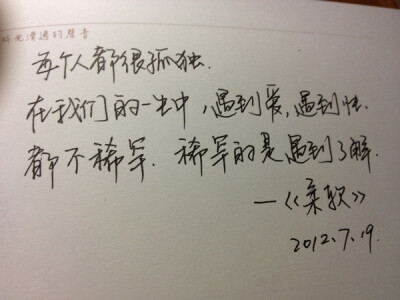 时光滑过的声音
每个人都很孤独.
在我们的一生中，遇到爱，遇到性.
都不稀罕. 稀罕的是遇到了解.
—《柔软》
2012.7.19.